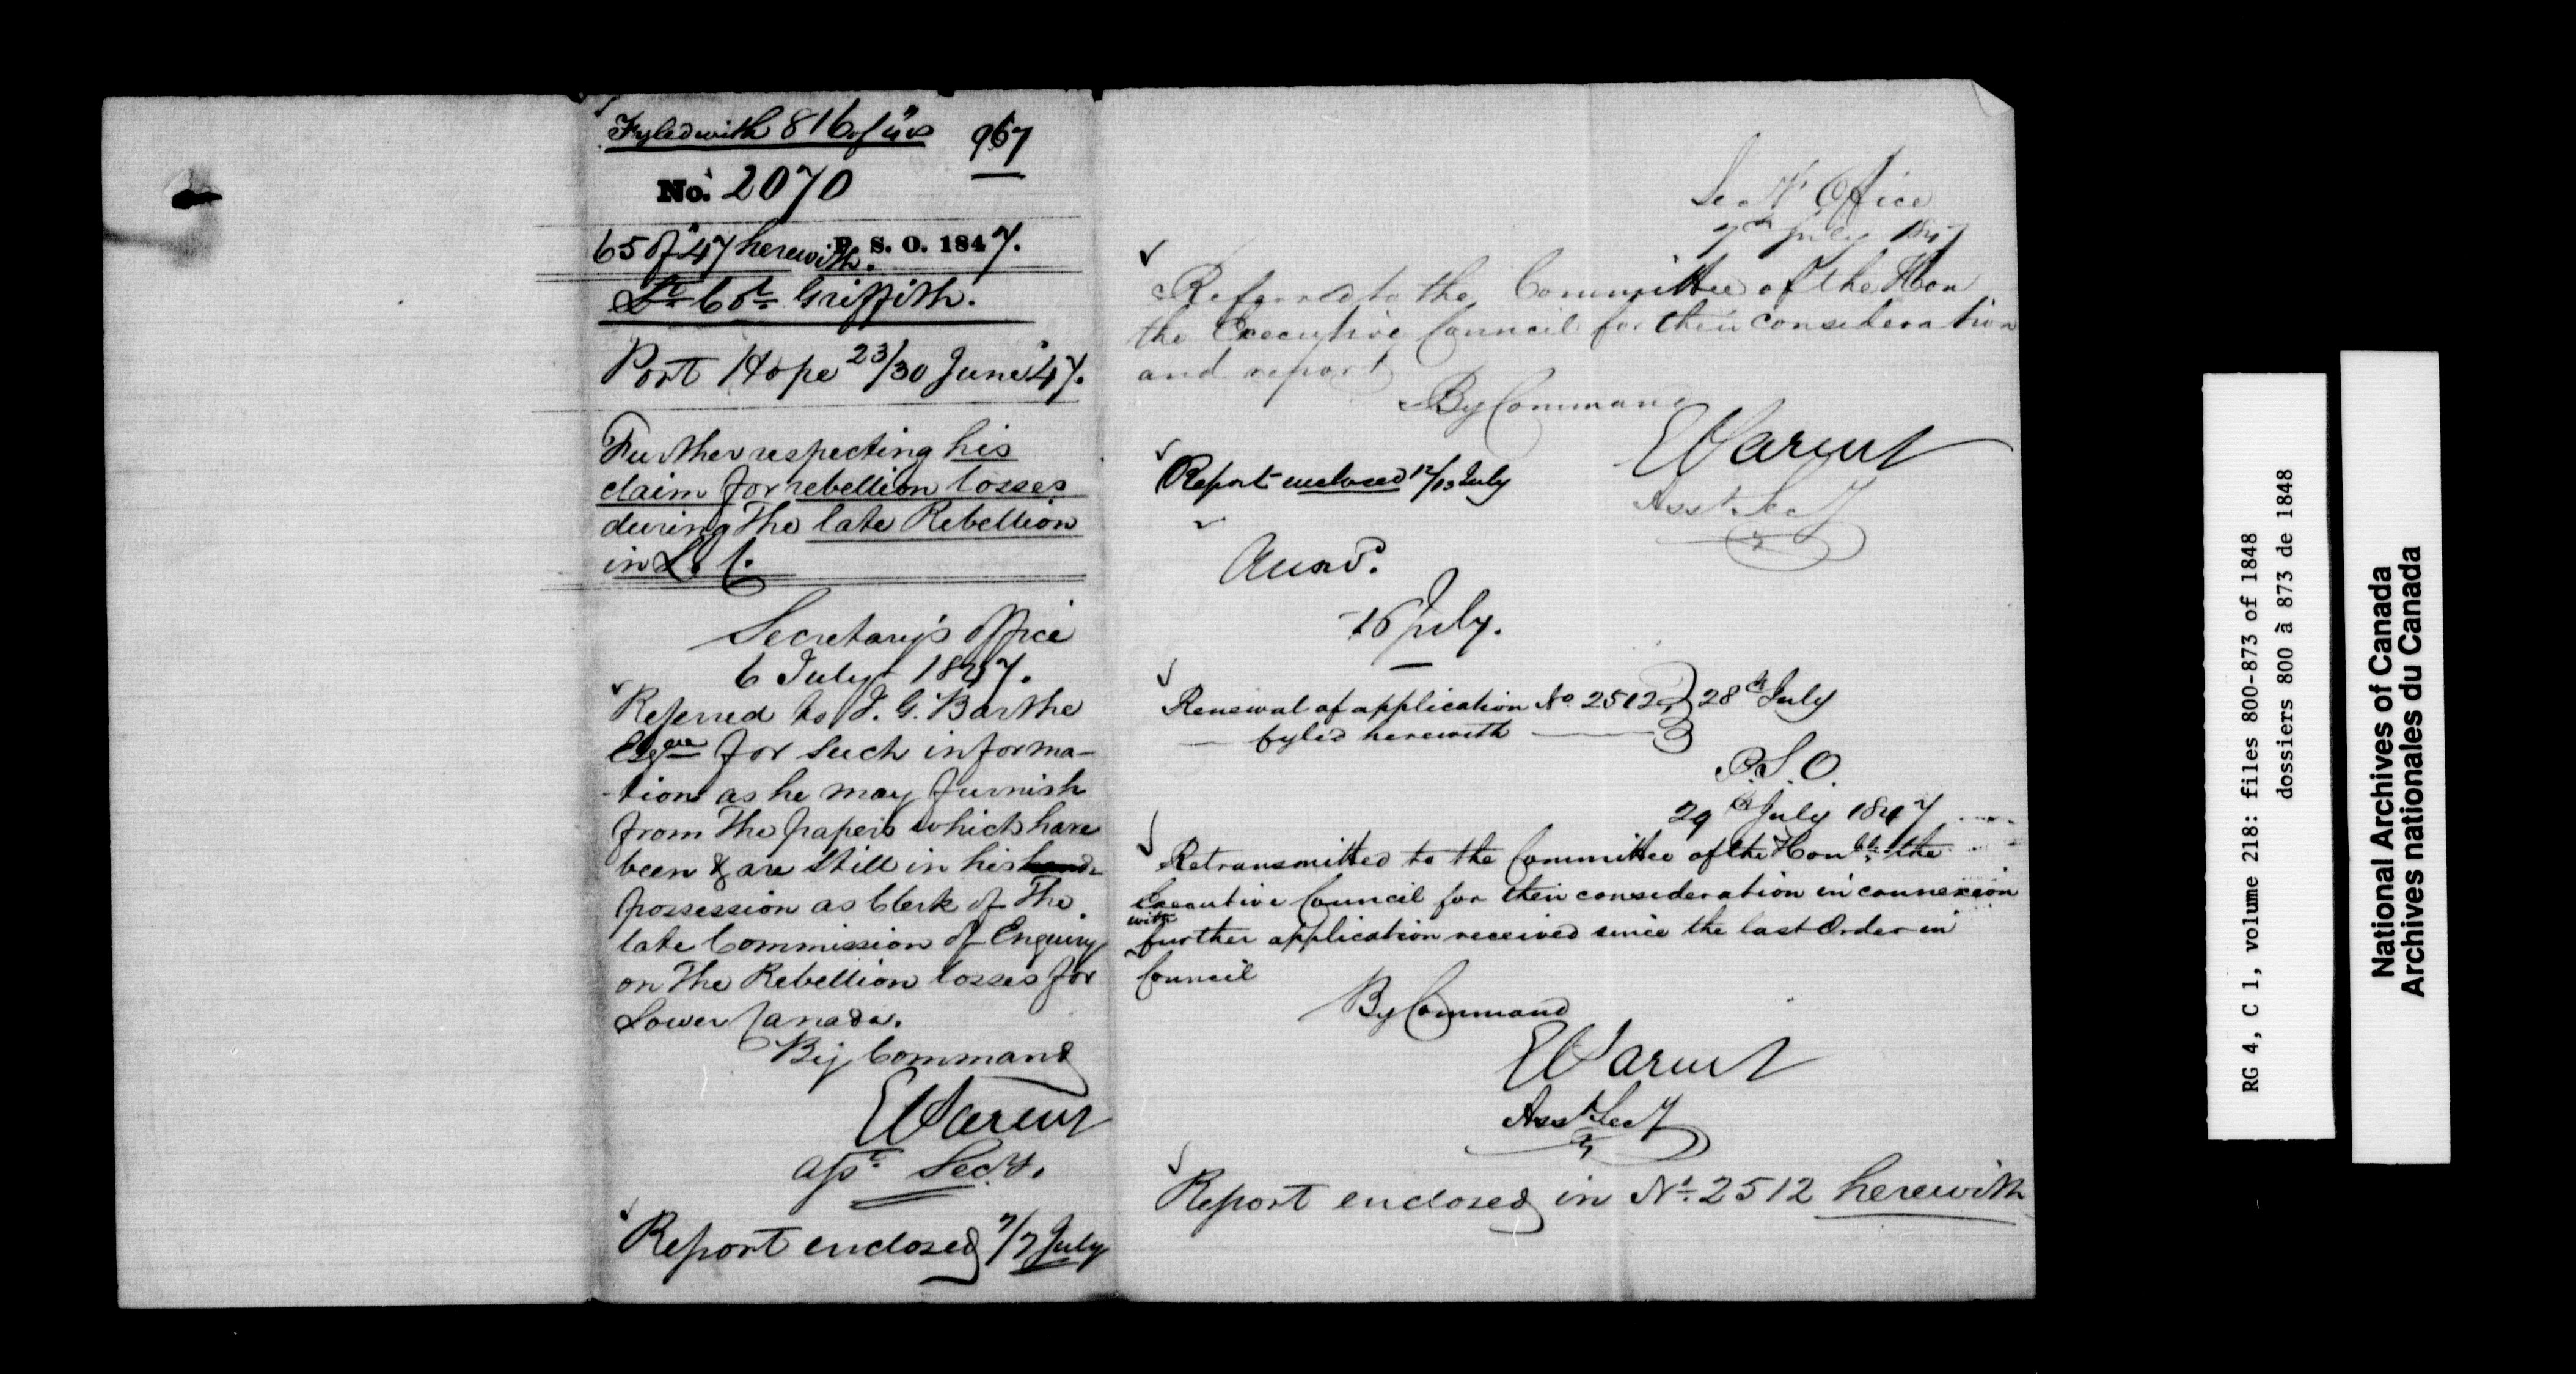 Fyled with 816 of 48
967
No. 2070
65 of 47 herewith. P. S. O. 1847.
Lt Col Griffith.
Port Hope 23/30 June 47.
Further respecting his
claim for rebellion losses
during the late Rebellion
in L. C.
Secretary's Office
6 July 1847.
Referred to J. G. Barthe
Esqre for such informa-
tion as he may furnish
from the papers which have
been & are still in his hands
possession as Clerk of the
late Commission of Enquiry
on the Rebellion losses for
Lower Canada.
By Command
E Parent
Asst Secy.
Report enclosed 7/7 July
Secy's Office
7th July 1847
Referred to the Committee of the Hon
the Executive Council for their consideration
and report
By Command
E Parent
Asst Secy
Report enclosed 12/13 July
Answd.
16 July.
Renewal of application No 2512 28th July
fyled herewith
P.S.O.
29th July 1847
Retransmitted to the Committee of the Honble the
Executive Council for their consideration in connexion
with
further application received since the last Order in
Council
By Command
E Parent
Asst Secy
Report enclosed in No. 2512 herewith
RG 4, C 1, volume 218: files 800-873 of 1848
dossiers 800 à 873 de 1848
National Archives of Canada
Archives nationales du Canada